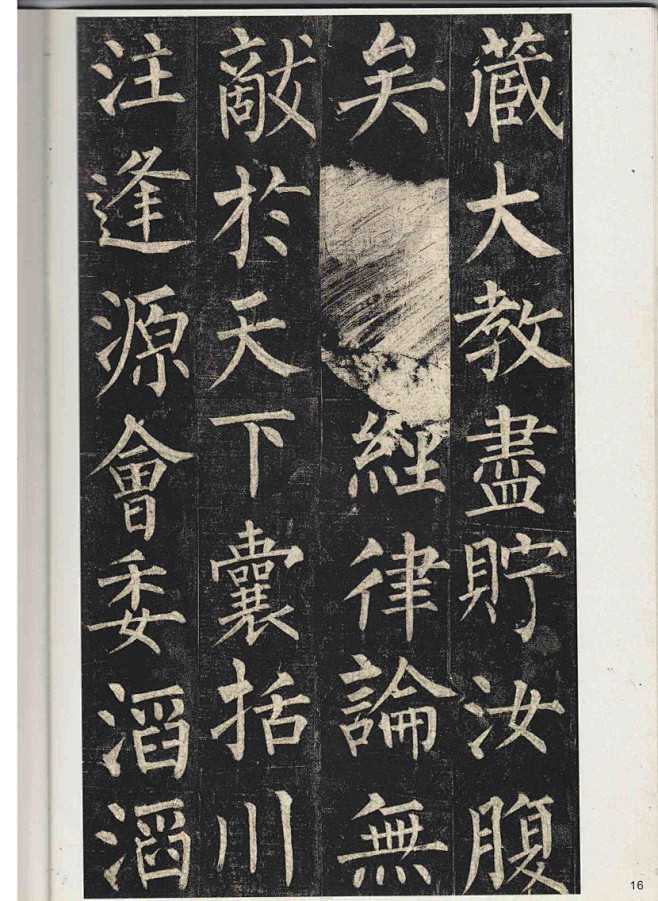 藏大教盡貯汝腹
矣經律論無
敵於天下囊括川
注逢源會委滔滔
16